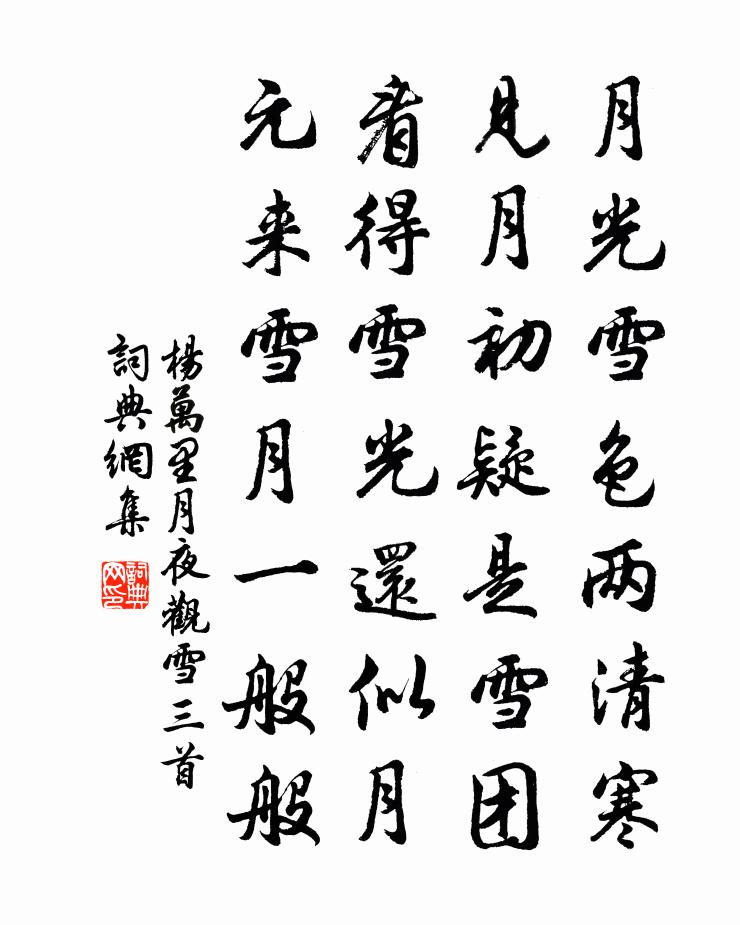 月光雪色两清寒
見月初疑是雪团
看得雪光還似月
元来雪月一般般
楊萬里月夜觀雪三首
詞典網集
詞典网印